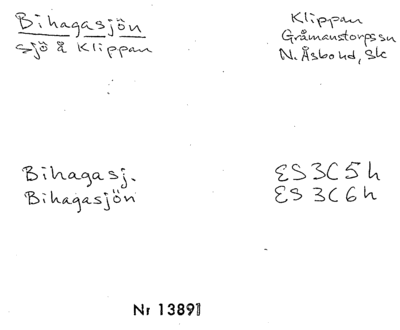 Bihagasjön
sjö å Klippan
Klippan
Gråmanstorps sn
N. Åsbo hd, Sk
Bihagasj. ES 3C5h
Bihagasjön ES 3C6h
Nr 13891